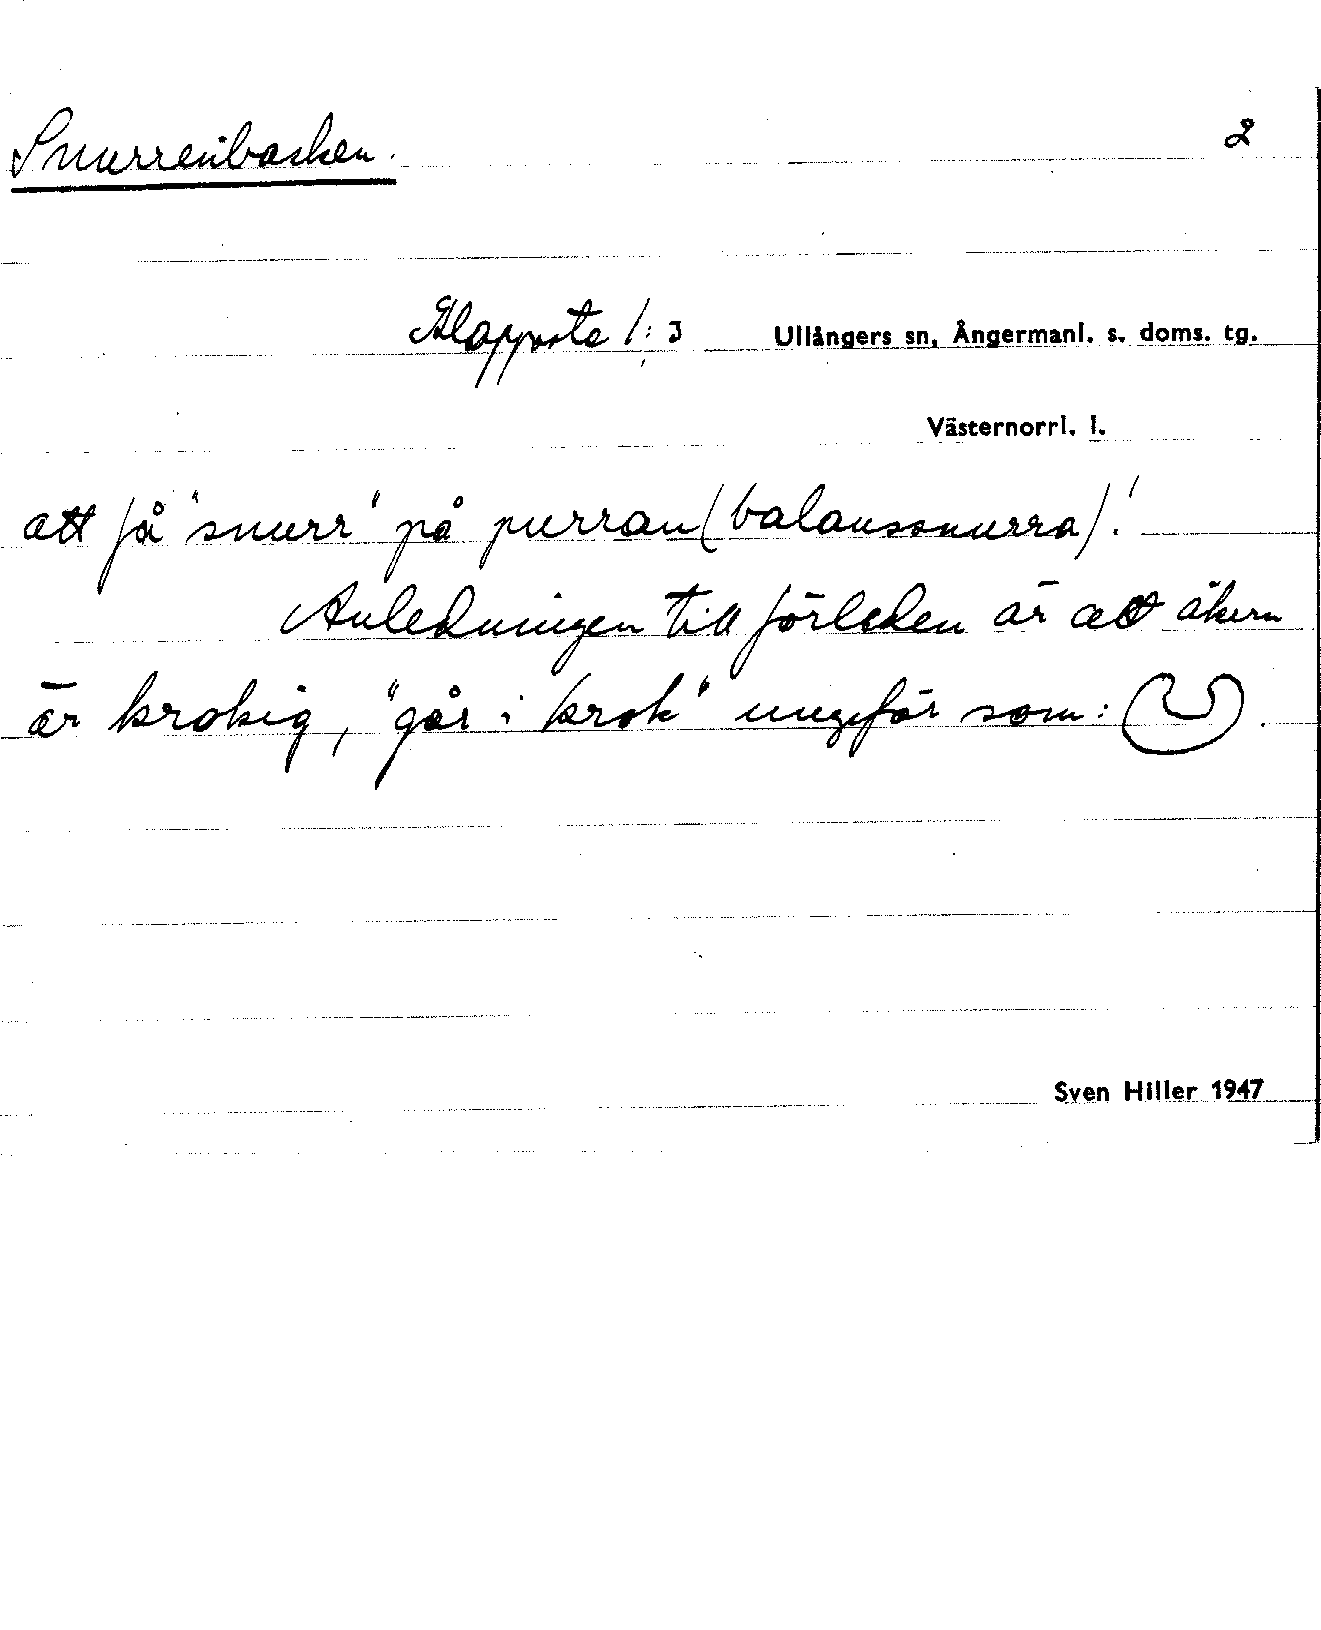 Snurrenbacken. 2
Klappsta 1:3 Ullångers sn, Ångermanl. s. doms. tg.
Västernorrl. l.
att få "snurr" på purran (balanssnurra)!
Anledningen till förleden är att åkern
är krokig, "går i krok" ungefär som: .
Sven Hiller 1947